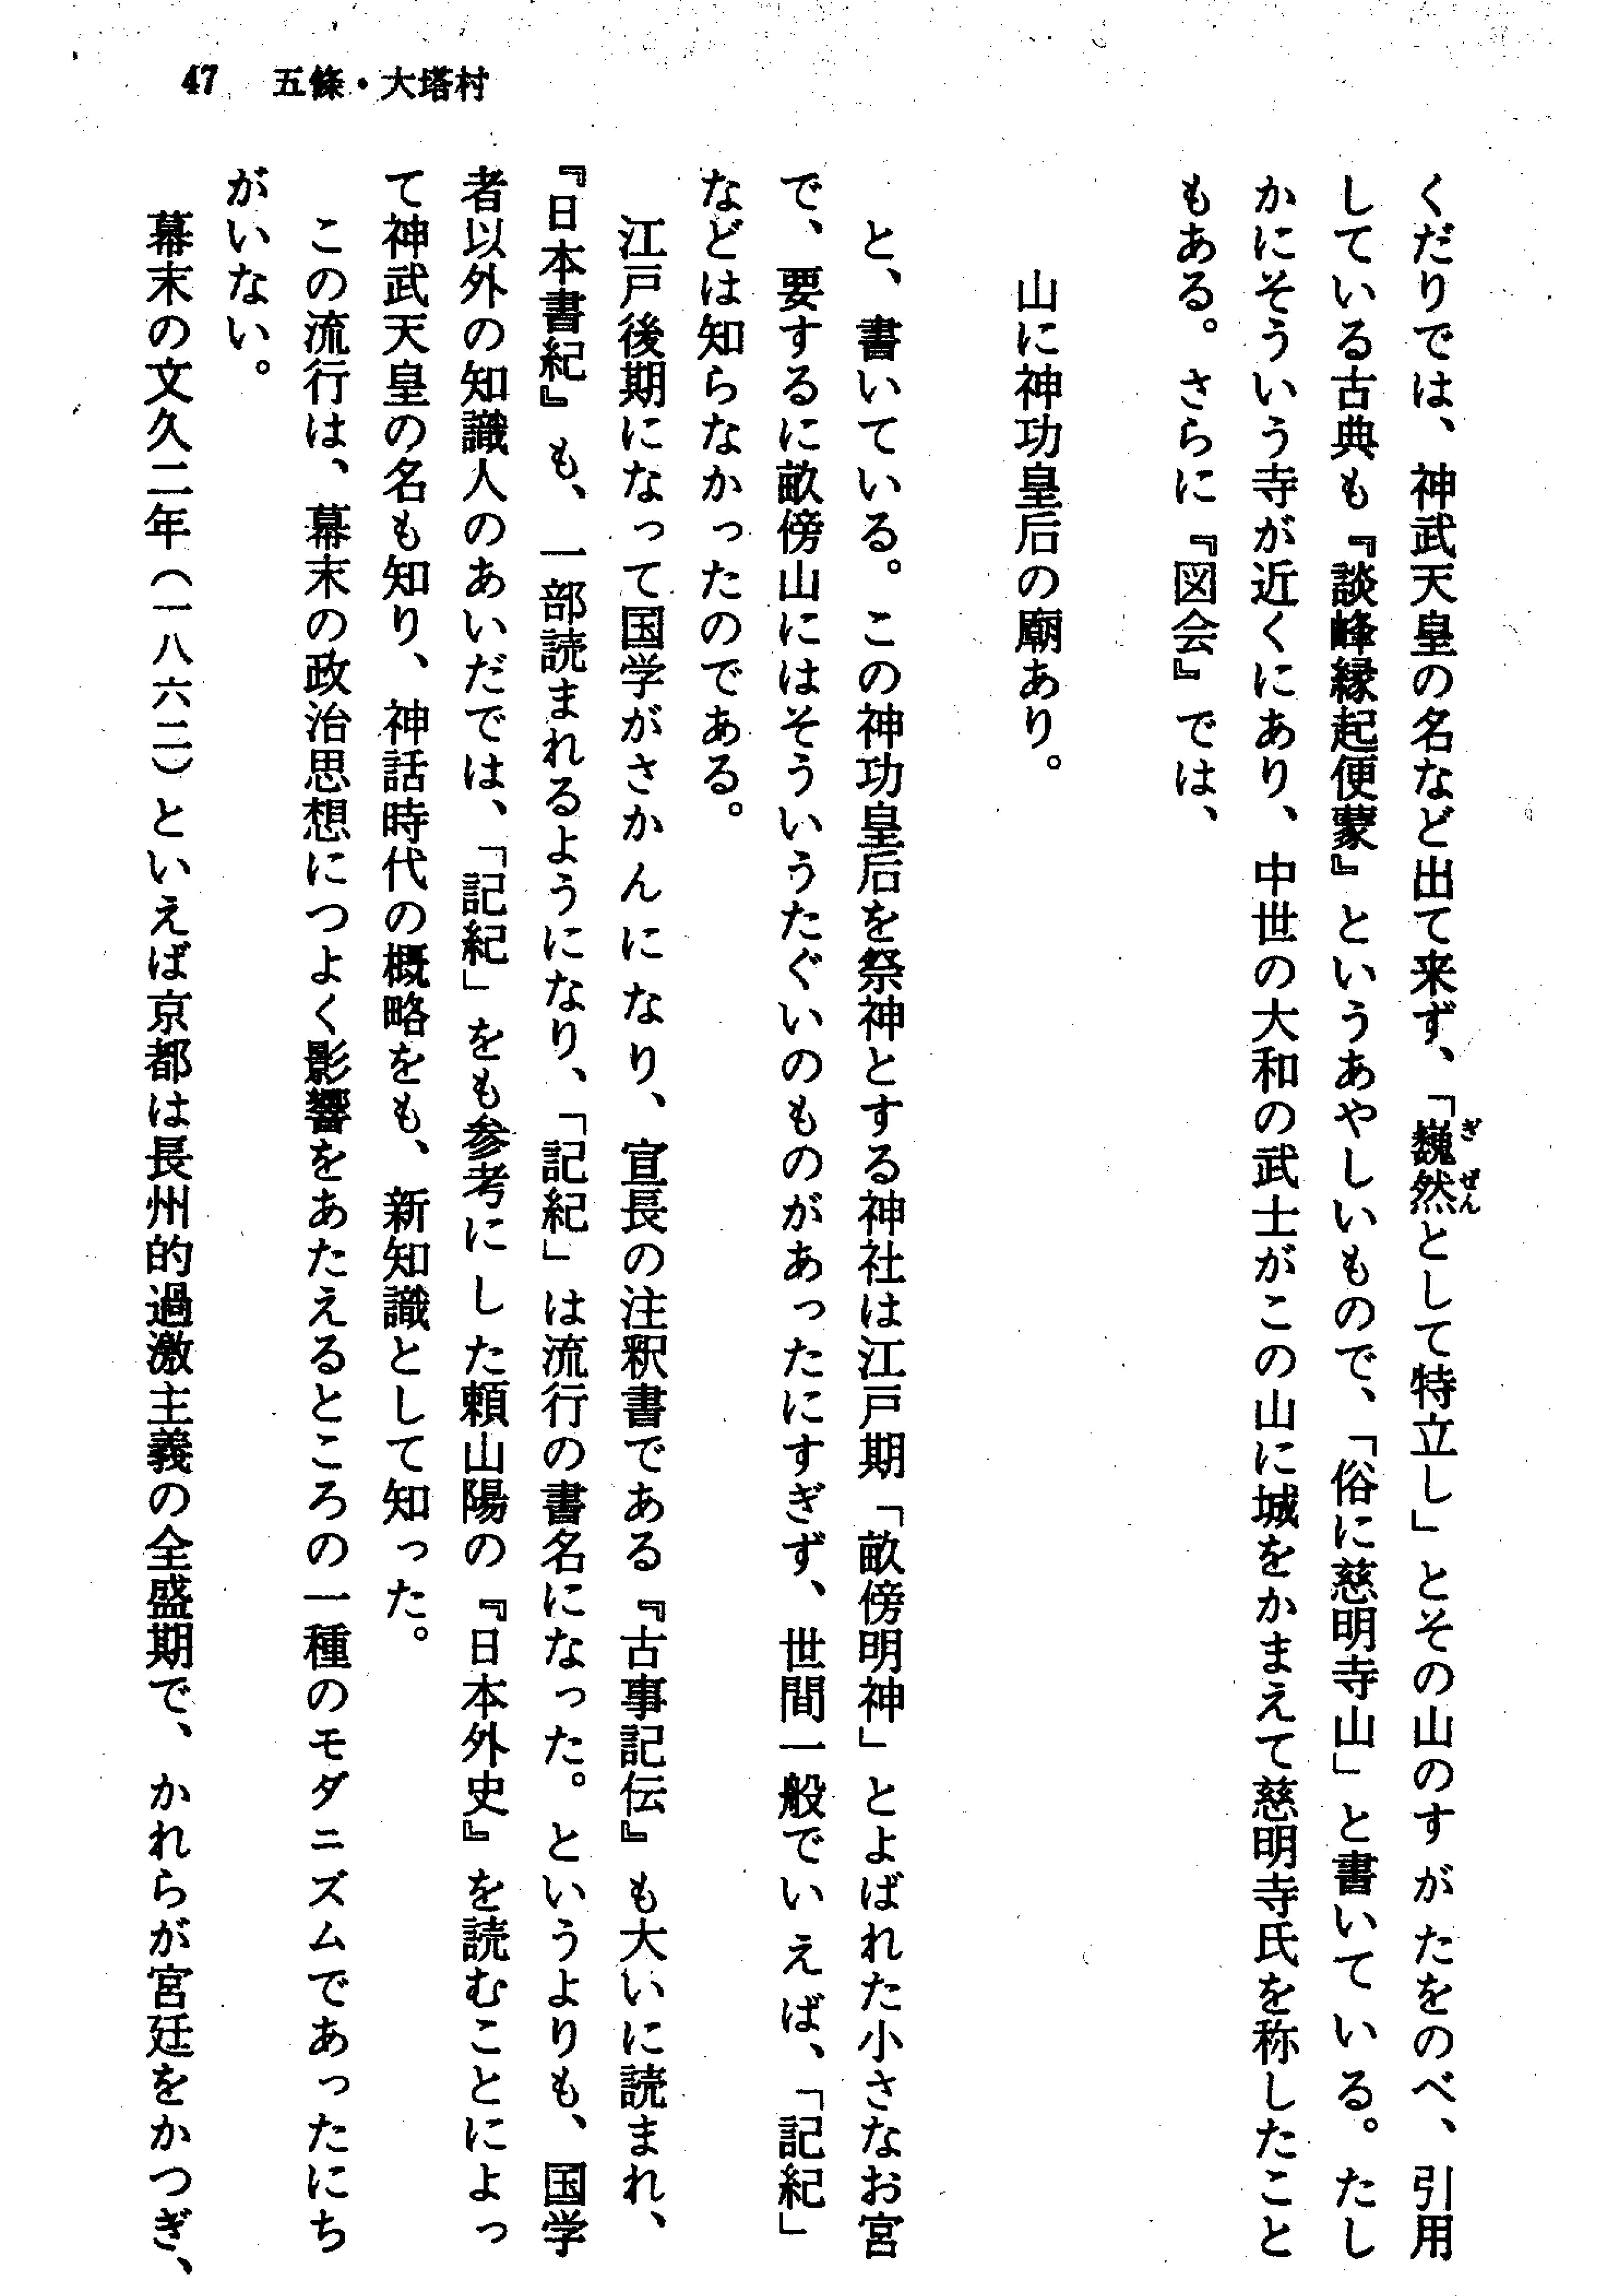 47 五條・大塔村
くだりでは、神武天皇の名など出て来ず、「巍然として特立し」とその山のすがたをのべ、引用
している古典も『談峰縁起便蒙』というあやしいもので、「俗に慈明寺山」と書いている。たし
かにそういう寺が近くにあり、中世の大和の武士がこの山に城をかまえて慈明寺氏を称したこと
もある。さらに『図会』では、
山に神功皇后の廟あり。
と、書いている。この神功皇后を祭神とする神社は江戸期「畝傍明神」とよばれた小さなお宮
で、要するに畝傍山にはそういうたぐいのものがあったにすぎず、世間一般でいえば、「記紀」
などは知らなかったのである。
江戸後期になって国学がさかんになり、宣長の注釈書である『古事記伝』も大いに読まれ、
『日本書紀』も、一部読まれるようになり、「記紀」は流行の書名になった。というよりも、国学
者以外の知識人のあいだでは、「記紀」をも参考にした頼山陽の『日本外史』を読むことによっ
て神武天皇の名も知り、神話時代の概略をも、新知識として知った。
この流行は、幕末の政治思想につよく影響をあたえるところの一種のモダニズムであったにち
がいない。
幕末の文久二年（一八六二）といえば京都は長州的過激主義の全盛期で、かれらが宮廷をかつぎ、